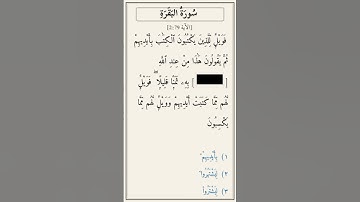 سُورَةُ البَقَرَةِ
[الآية 79 :2]
فَوَيْلٌ لِّلَّذِينَ يَكْتُبُونَ ٱلْكِتَٰبَ بِأَيْدِيهِمْ
ثُمَّ يَقُولُونَ هَٰذَا مِنْ عِندِ ٱللَّهِ
[ ] بِهِۦ ثَمَنًا قَلِيلًا ۖ فَوَيْلٌ
لَّهُم مِّمَّا كَتَبَتْ أَيْدِيهِمْ وَوَيْلٌ لَّهُم مِّمَّا
يَكْسِبُونَ
١) بِأَيْدِيهِمْ
٢) لِيَشْتَرُوا۟
٣) يَشْتَرُوا۟